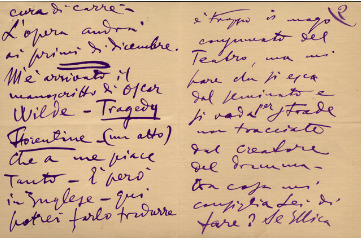 cura di correre -
L'opera andrà
ai primi di dicembre.
M'è arrivato il
manoscritto di Oscar
Wilde - Tragedy
Fiorentine - (un atto)
che a me piace
tanto - È però
in Inglese - qui
potrei farlo tradurre
2
è troppo il mago
consumato del
Teatro, ma mi
pare che si esca
dal seminato e
si vada per strade
non tracciate
dal creatore
del dramma -
cosa mi
consiglia Lei di
fare? Se Illica